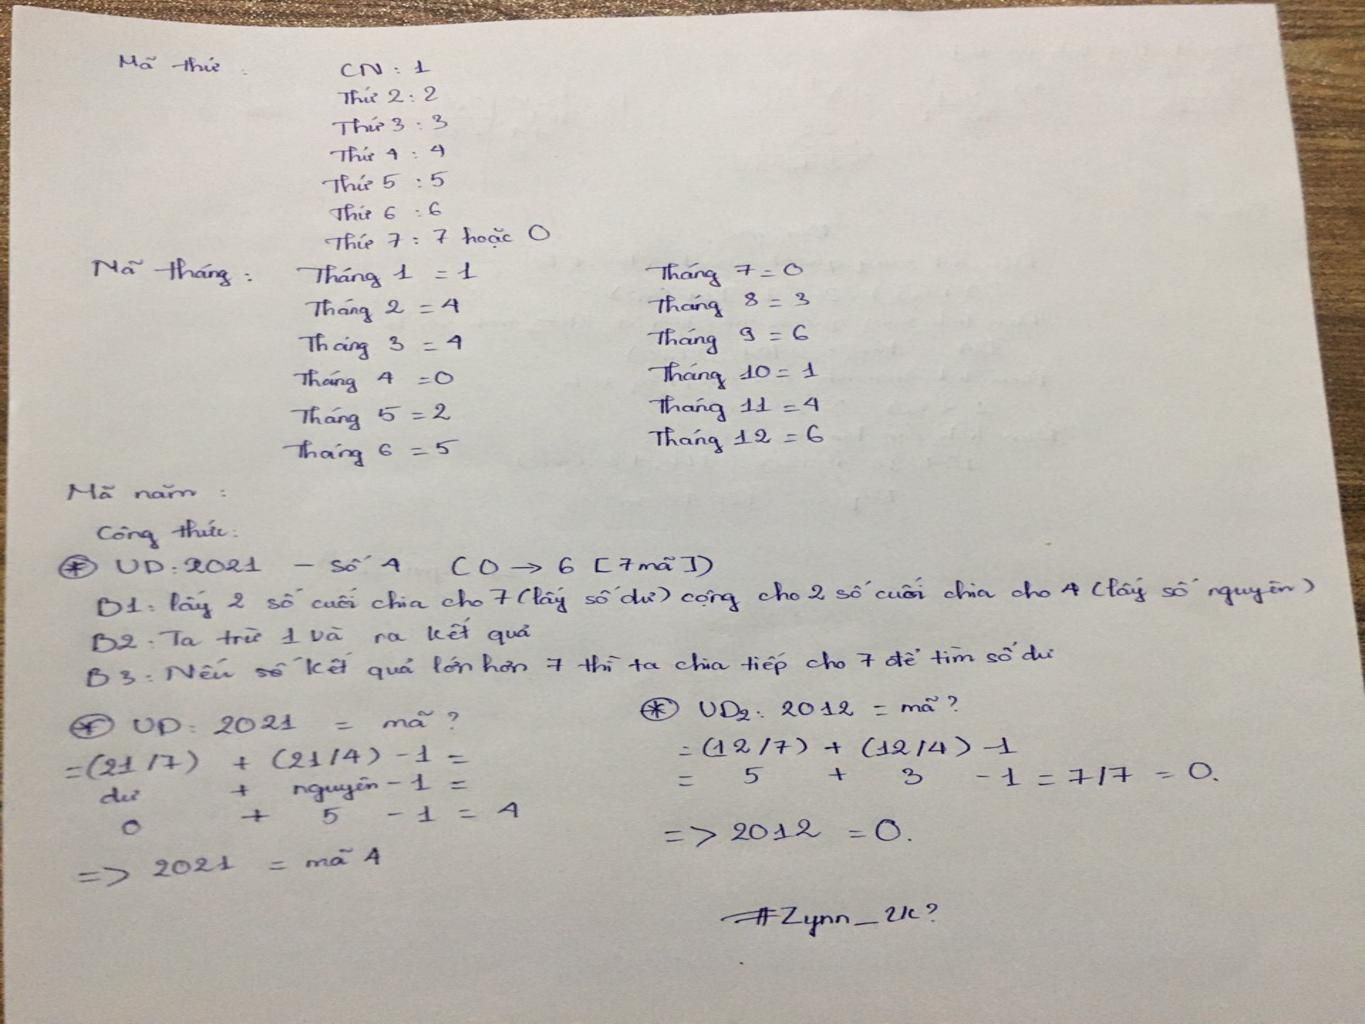 Mã thứ : CN : 1
Thứ 2 : 2
Thứ 3 : 3
Thứ 4 : 4
Thứ 5 : 5
Thứ 6 : 6
Thứ 7 : 7 hoặc 0
Mã tháng : Tháng 1 = 1 Tháng 7 = 0
Tháng 2 = 4 Tháng 8 = 3
Tháng 3 = 4 Tháng 9 = 6
Tháng 4 = 0 Tháng 10 = 1
Tháng 5 = 2 Tháng 11 = 4
Tháng 6 = 5 Tháng 12 = 6
Mã năm :
Công thức:
* UD: 2021 - Số 4 (0 → 6 [7 mã])
B1: lấy 2 số cuối chia cho 7 (lấy số dư) cộng cho 2 số cuối chia cho 4 (lấy số nguyên)
B2: Ta trừ 1 và ra kết quả
B3: Nếu số kết quả lớn hơn 7 thì ta chia tiếp cho 7 để tìm số dư
* UD: 2021 = mã?
= (21/7) + (21/4) - 1 =
dư + nguyên - 1 =
0 + 5 - 1 = 4
=> 2021 = mã 4
* UD2: 2012 = mã?
= (12/7) + (12/4) - 1
= 5 + 3 - 1 = 7/7 = 0.
=> 2012 = 0.
#Zynn_2k?